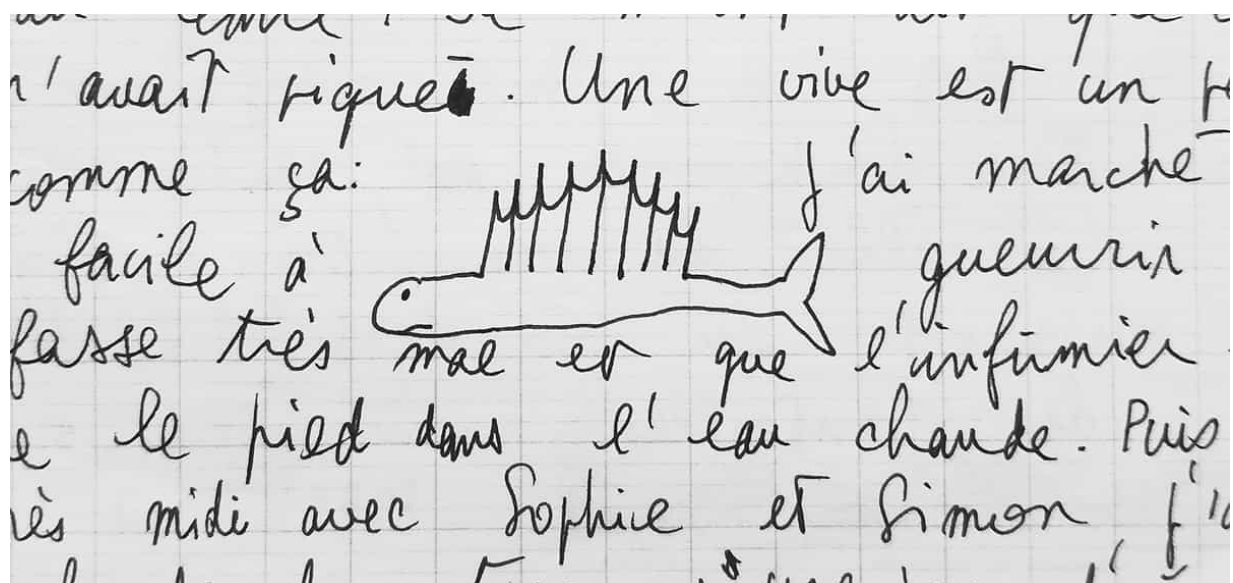 n'avait piqué. Une vive est un
comme ça: j'ai marché
facile à gueurrir
fasse très mal et que l'infirmier
le pied dans l'eau chaude. Puis
midi avec Sophie et Simon, j'